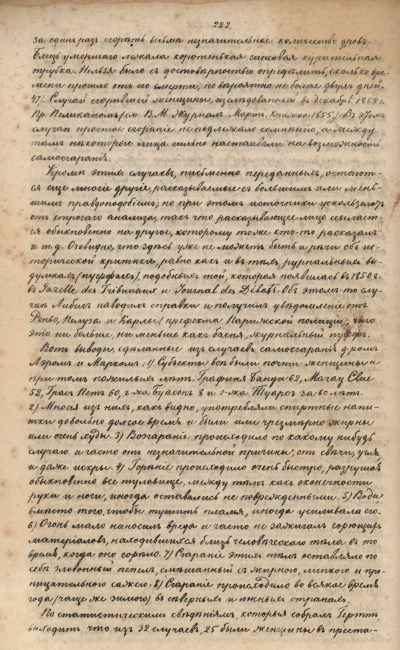 222
за один раз сгорать весьма незначительное количество дров.
Близь умершаго лежала коротенькая гипсовая курительная
трубка. Нельзя было съ достоверностью определить, сколько вре-
мени прошло отъ его смерти, но вероятно не более двухъ дней.
47) Случай сгоревшей женщины, изследованный въ декабре 1854 г.
Пр. Пеликаномъ (см. В. М. Журналъ. Мартъ. Книжка 1855). Въ этомъ
случае простое сгорание не подлежало сомненію, а между
темъ некоторые лица сильно настаивали на возможность
самосгаранія.
Кроме этихъ случаевъ, письменно переданныхъ, остаются
еще многіе другіе, рассказываемые съ большимъ или мень-
шимъ правдоподобіемъ; но при этомъ источники ускользаютъ
отъ строгаго анализа, такъ что рассказывающее лицо ссылает-
ся обыкновенно на другое, которому тоже кто-то рассказалъ
и т. д. Очевидно, что здесь уже не можетъ быть и речи объ ис-
торической критике, равно какъ и въ техъ журнальныхъ вы-
думкахъ (пуффахъ), подобныхъ той, которая появилась въ 1850 г.
въ Gazette des Tribunaux и Journal des Débats. Объ этомъ то слу-
чае Либихъ наводилъ справки и получилъ уведомленіе отъ
Реньо, Пелуза и Карлье (префекта Парижской полиціи), что
это ни больше, ни меньше какъ басня, журнальный пуффъ.
Вотъ выводы, сделанные изъ случаевъ самосгаранія д-комъ
Лэромъ и Маркомъ: 1) Субъекты все были почти женщины и
при томъ пожилыхъ летъ. Графиня Банди 62, Мачау Clue
52, Грасъ Петъ 60, г-жа Буасонъ 8 и г-жа Тюаръ за 60 летъ.
2) Многія изъ нихъ, какъ видно, употребляли спиртные напи-
тки довольно долгое время и были или чрезмерно жирны
или очень худы. 3) Возгараніе происходило по какому нибудь
случаю и часто отъ незначительной причины, отъ свечи, угля
и даже искры. 4) Гореніе происходило очень быстро, разрушая
обыкновенно все туловище, между темъ какъ оконечности
руки и ноги, иногда оставались не поврежденными. 5) Вода
вместо того, чтобы тушить пламя, иногда усиливала его.
6) Огонь мало наносилъ вреда и часто не зажигалъ горючихъ
матеріаловъ, находившихся близъ человеческаго тела въ то
время, когда оно горело. 7) Сгараніе этихъ телъ оставляло по
себе зловонный пепелъ, смешанный съ жирною, липкою и про-
ницательною сажею. 8) Сгараніе происходило во всякое время
года (чаще же зимою) въ северныхъ и южныхъ странахъ.
По статистическимъ сведеніямъ которыя собралъ Герттъ
выходитъ что изъ 32 случаевъ, 25 были женщины въ преста-